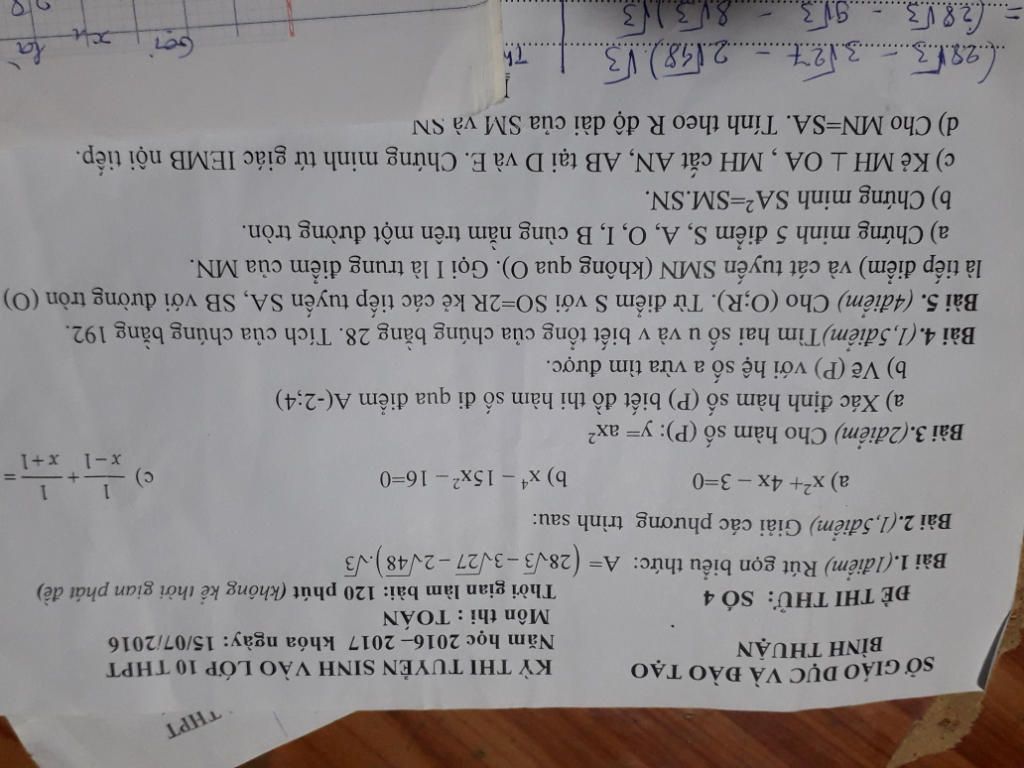 THPT
SỞ GIÁO DỤC VÀ ĐÀO TẠO
BÌNH THUẬN
ĐỀ THI THỬ: SỐ 4
KỲ THI TUYỂN SINH VÀO LỚP 10 THPT
Năm học 2016– 2017 khóa ngày: 15/07/2016
Môn thi : TOÁN
Thời gian làm bài: 120 phút (không kể thời gian phát đề)
Bài 1.(1điểm) Rút gọn biểu thức: A= (28√3 – 3√27 – 2√48).√3
Bài 2.(1,5điểm) Giải các phương trình sau:
a) x²+ 4x – 3=0 b) x⁴ – 15x² – 16=0 c) 1/(x–1) + 1/(x+1) =
Bài 3.(2điểm) Cho hàm số (P): y= ax²
a) Xác định hàm số (P) biết đồ thi hàm số đi qua điểm A(-2;4)
b) Vẽ (P) với hệ số a vừa tìm được.
Bài 4.(1,5điểm)Tìm hai số u và v biết tổng của chúng bằng 28. Tích của chúng bằng 192.
Bài 5. (4điểm) Cho (O;R). Từ điểm S với SO=2R kẻ các tiếp tuyến SA, SB với đường tròn (O)
là tiếp điểm) và cát tuyến SMN (không qua O). Gọi I là trung điểm của MN.
a) Chứng minh 5 điểm S, A, O, I, B cùng nằm trên một đường tròn.
b) Chứng minh SA²=SM.SN.
c) Kẻ MH ⊥ OA , MH cắt AN, AB tại D và E. Chứng minh tứ giác IEMB nội tiếp.
d) Cho MN=SA. Tính theo R độ dài của SM và SN
(28√3 – 3√27 – 2√48)√3
= (28√3 – 9√3 – 8√3)√3
Gọi x
là